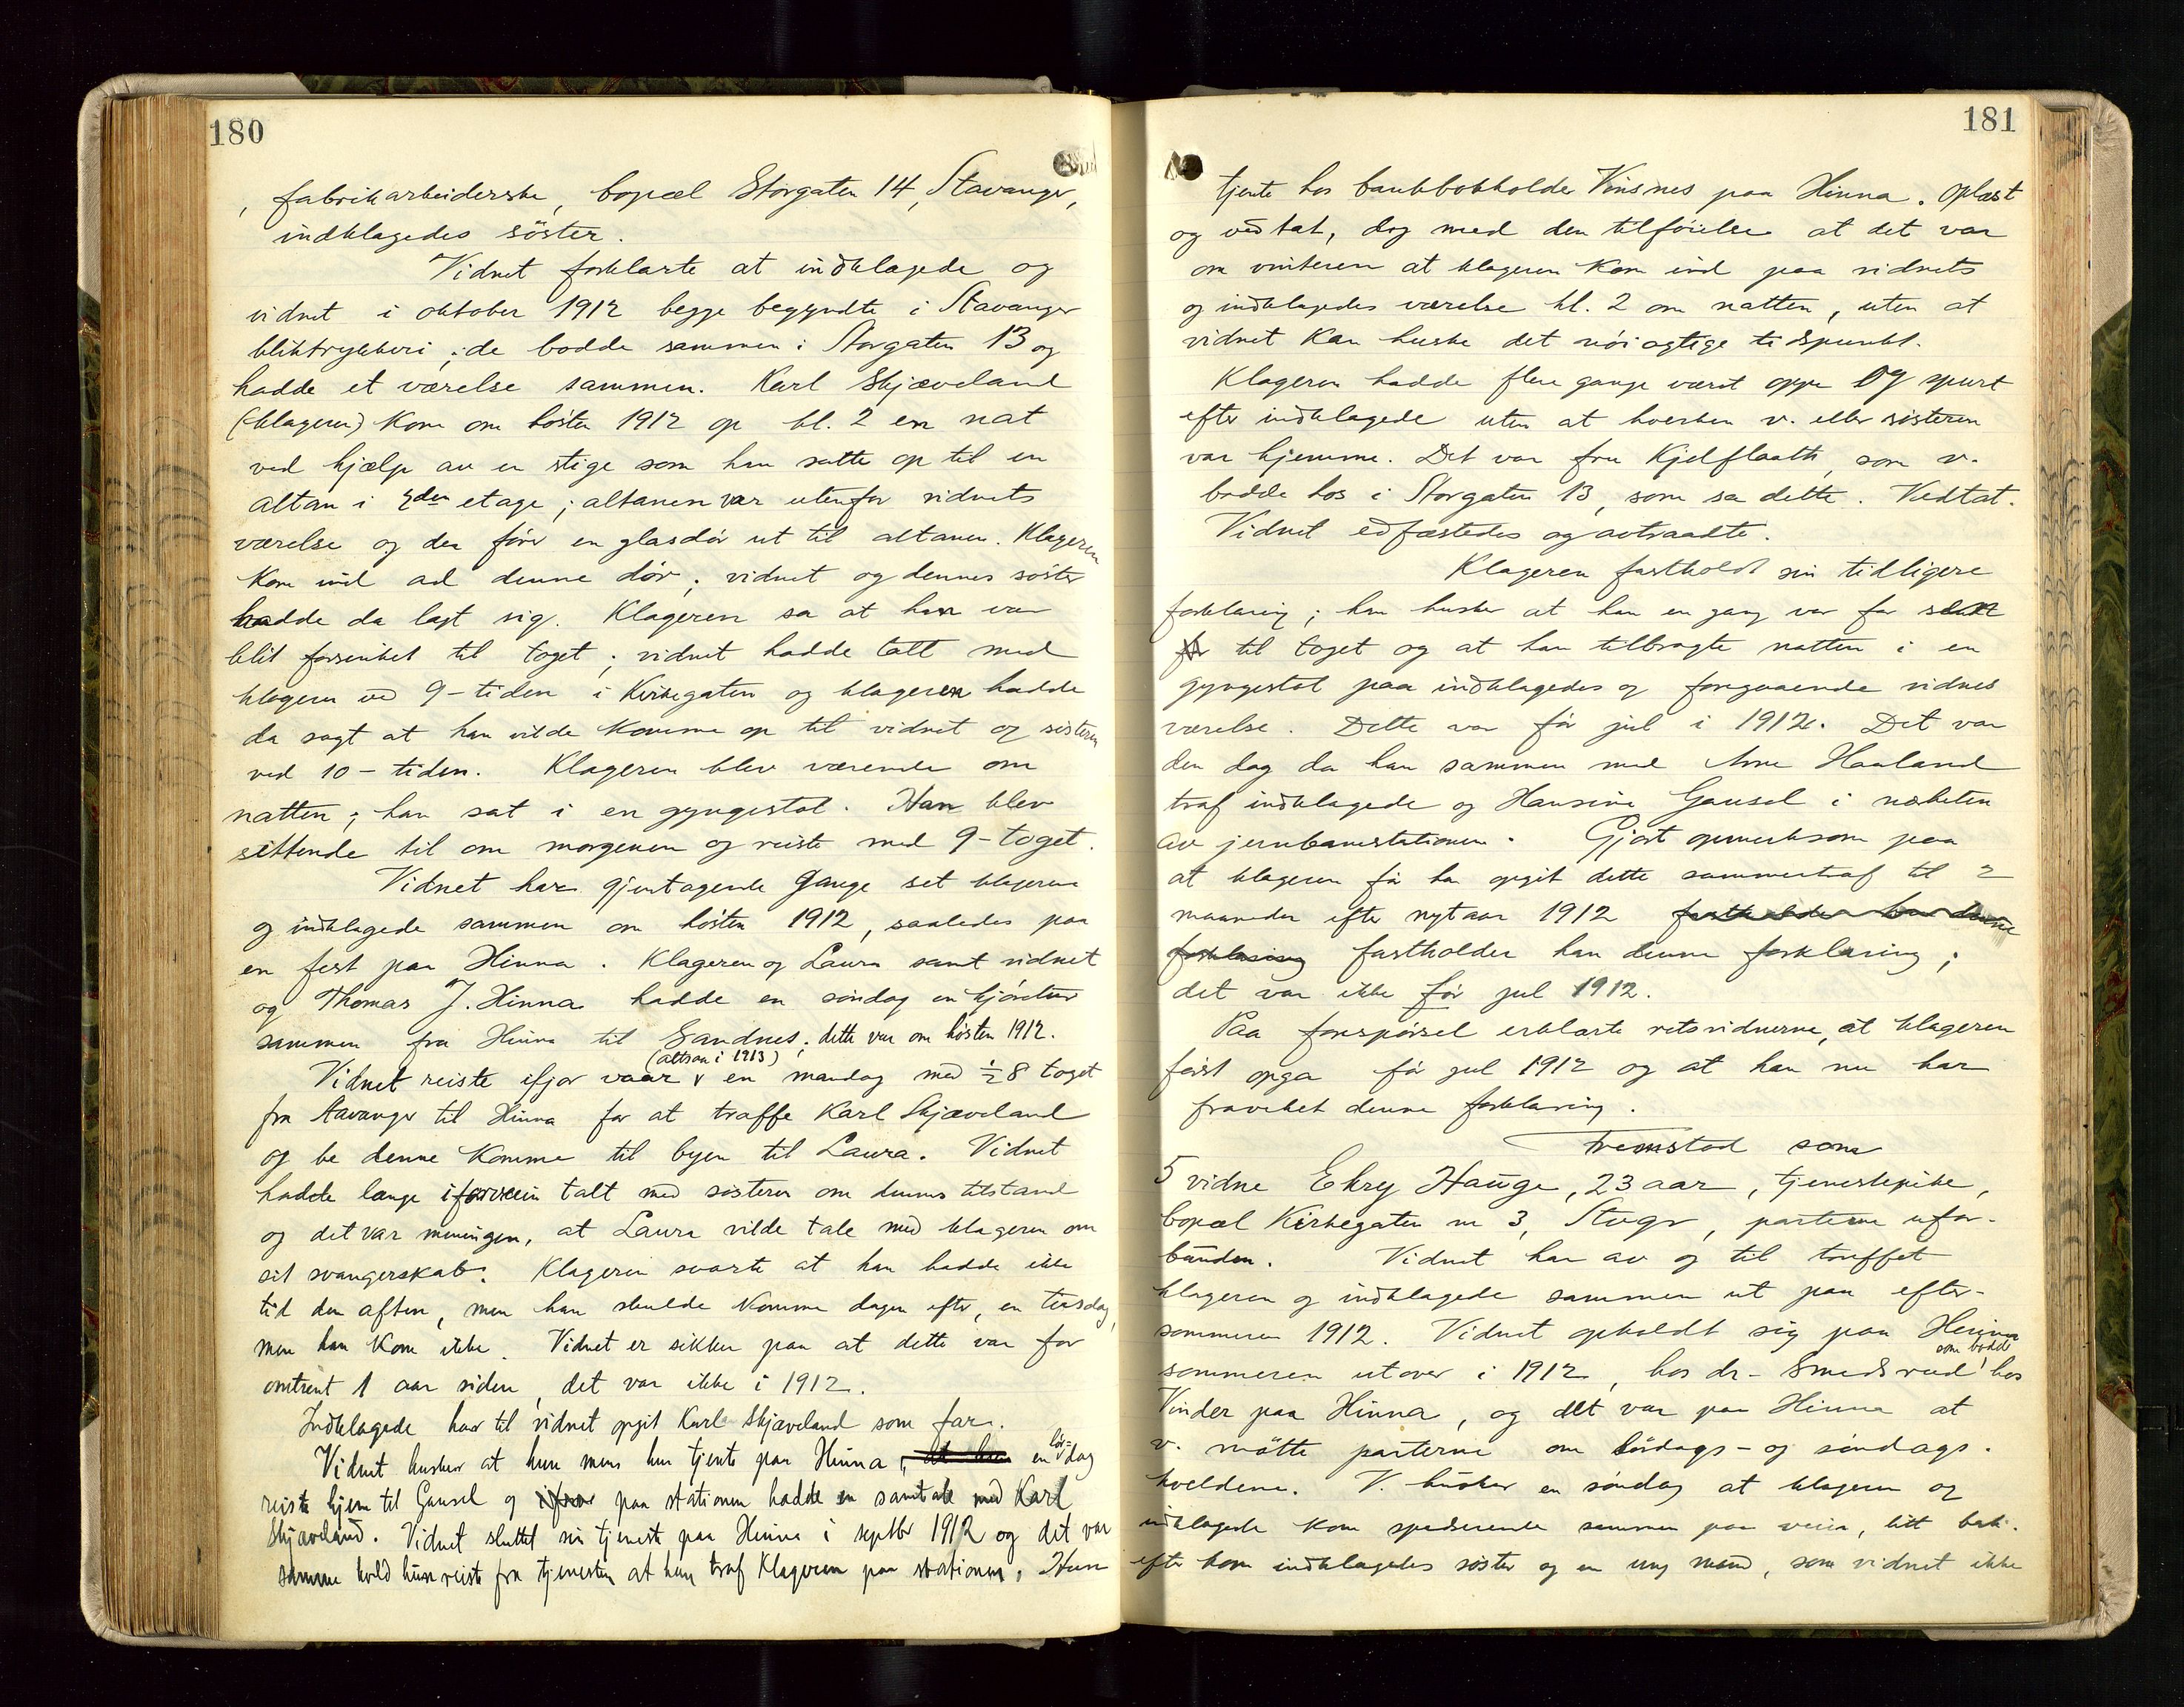 180
, fabrikarbeiderske, bopæl Storgaten 14, Stavanger,
indklagedes søster.
Vidnet forklarte at indklagede og
vidnet i oktober 1912 begge begyndte i Stavanger
bliktrykkeri; de bodde sammen i Storgaten 13 og
hadde et værelse sammen. Karl Skjæveland
(klageren) kom om høsten 1912 op kl. 2 en nat
ved hjælp av en stige som han satte op til en
altan i 2den etage; altanen var utenfor vidnets
værelse og der fører en glasdør ut til altanen. Klageren
kom ind ad denne dør; vidnet og dennes søster
hadde da lagt sig. Klageren sa at han var
blit forsinket til toget; vidnet hadde talt med
klageren ved 9-tiden i Kirkegaten og klageren hadde
da sagt at han vilde komme op til vidnet og søsteren
ved 10-tiden. Klageren blev værende om
natten; han sat i en gyngestol. Han blev
sittende til om morgenen og reiste med 9-toget.
Vidnet har gjentagende gange set klageren
og indklagede sammen om høsten 1912, saaledes paa
en fest paa Hinna. Klageren og Laura samt vidnet
og Thomas J. Hinna hadde en søndag en kjøretur
sammen fra Hinna til Sandnes; dette var om høsten 1912.
(altsaa i 1913)
Vidnet reiste ifjor vaar en mandag med ½8 toget
fra Stavanger til Hinna for at træffe Karl Skjæveland
og be denne komme til byen til Laura. Vidnet
hadde længe iforveien talt med søsteren om dennes tilstand
og det var meningen, at Laura vilde tale med klageren om
sit svangerskab. Klageren svarte at han hadde ikke
tid den aften, men han skulde komme dagen efter, en tirsdag,
men han kom ikke. Vidnet er sikker paa at dette var for
omtrent 1 aar siden, det var ikke i 1912.
Indklagede har til vidnet opgit Karl Skjæveland som far.
Vidnet husker at hun mens hun tjente paa Hinna, at hun en lørdag
reiste hjem til Gausel og paa stationen hadde en samtale med Karl
Skjæveland. Vidnet sluttet sin tjeneste paa Hinna i septbr 1912 og det var
samme kveld hun reiste fra tjenesten at hun traf klageren paa stationen. Hun
181
tjente hos bankbokholder Vinsnes paa Hinna. Oplæst
og vedtat, dog med den tilføielse at det var
om vinteren at klageren kom ind paa vidnets
og indklagedes værelse kl. 2 om natten, uten at
vidnet kan huske det nøiagtige tidspunkt.
Klageren hadde flere gange været oppe og spurt
efter indklagede uten at hverken v. eller søsteren
var hjemme. Det var fru Kjelflaath, som v.
bodde hos i Storgaten 13, som sa dette. Vedtat.
Vidnet edfæstedes og avtraadte.
Klageren fastholdt sin tidligere
forklaring; han husker at han en gang var for sen
til toget og at han tilbragte natten i en
gyngestol paa indklagedes og foregaaende vidnes
værelse. Dette var før jul i 1912. Det var
den dag da han sammen med Arne Haaland
traf indklagede og Hansine Gausel i nærheten
av jernbanestationen. Gjort opmerksom paa
at klageren før har opgit dette sammentræf til 2
maaneder efter nytaar 1912 fastholder han denne
forklaring fastholder han denne forklaring;
det var ikke før jul 1912.
Paa forespørsel erklærte retsvidnerne, at klageren
først opga før jul 1912 og at han nu har
fraveket denne forklaring.
Fremstod som
5 vidne Ekry Hauge, 23 aar, tjenestepike,
bopæl Kirkegaten nr 3, Stvgr, parterne ufor-
bunden. Vidnet har av og til truffet
klageren og indklagede sammen ut paa efter-
sommeren 1912. Vidnet opholdt sig paa Hinna
som bodde
sommeren utover i 1912, hos dr. Smedsrud hos
Vinder paa Hinna, og det var paa Hinna at
v. møtte parterne om lørdags- og søndags-
kveldene. V. husker en søndag at klageren og
indklagede kom spaserende sammen paa veien, litt bak-
efter kom indklagedes søster og en ung mand, som vidnet ikke